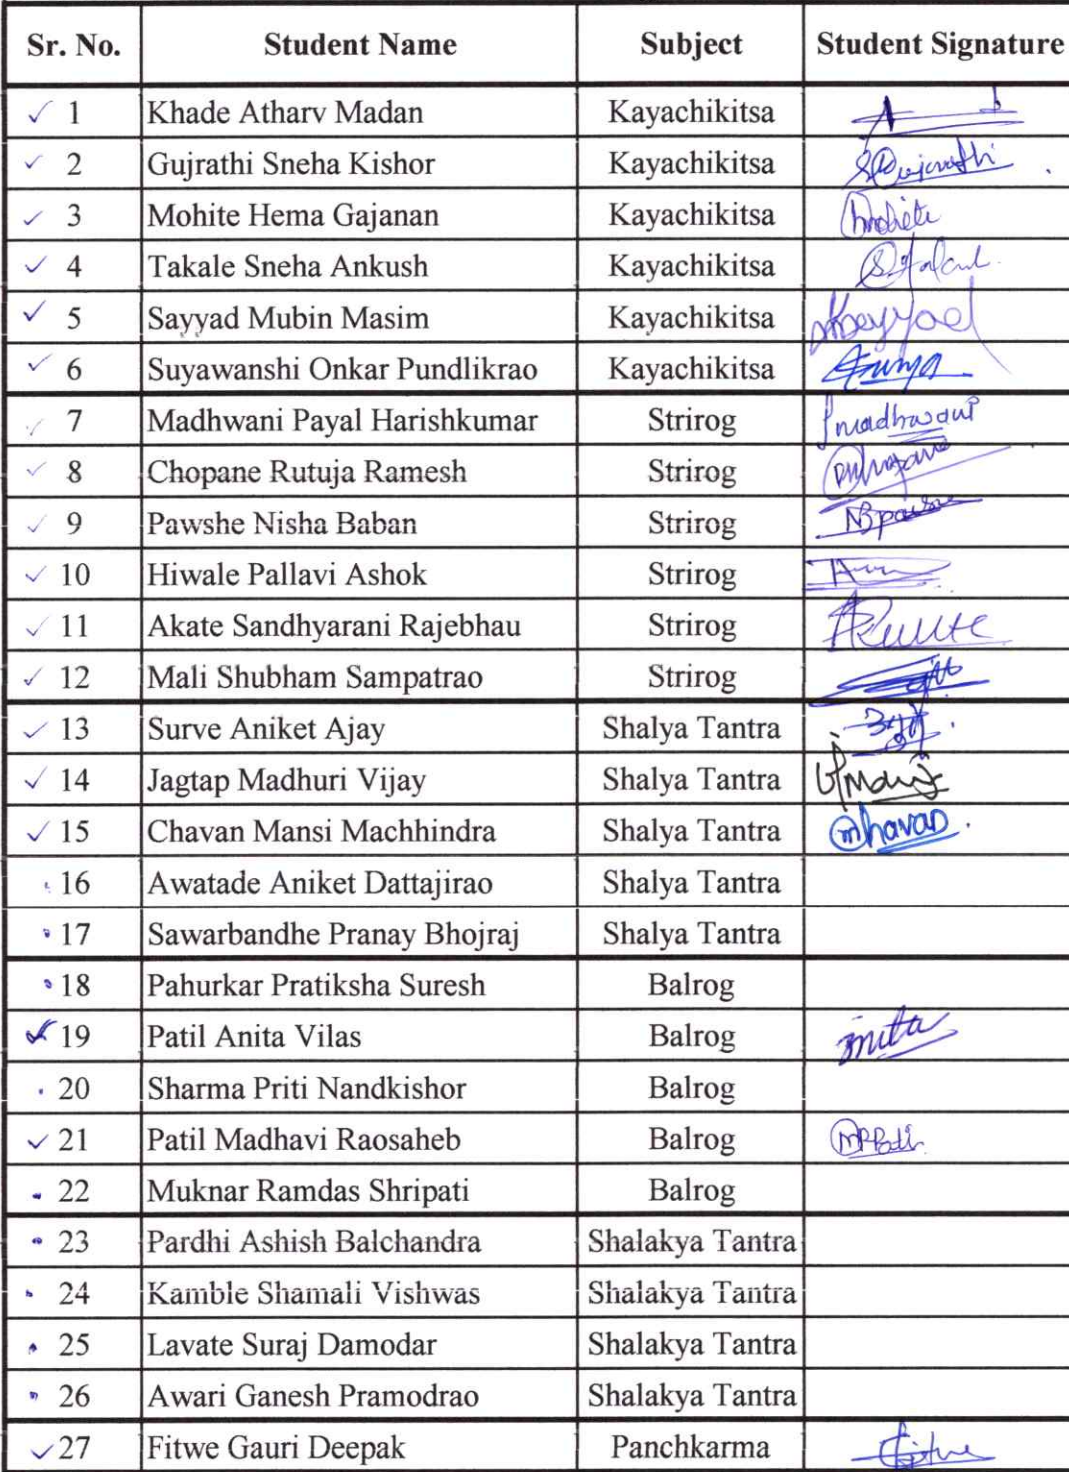 Sr. No. Student Name Subject Student Signature
✓ 1 Khade Atharv Madan Kayachikitsa
✓ 2 Gujrathi Sneha Kishor Kayachikitsa SGujrathi
✓ 3 Mohite Hema Gajanan Kayachikitsa hmohite
✓ 4 Takale Sneha Ankush Kayachikitsa
✓ 5 Sayyad Mubin Masim Kayachikitsa
✓ 6 Suyawanshi Onkar Pundlikrao Kayachikitsa
✓ 7 Madhwani Payal Harishkumar Strirog Pmadhwani
✓ 8 Chopane Rutuja Ramesh Strirog
✓ 9 Pawshe Nisha Baban Strirog
✓ 10 Hiwale Pallavi Ashok Strirog
✓ 11 Akate Sandhyarani Rajebhau Strirog
✓ 12 Mali Shubham Sampatrao Strirog
✓ 13 Surve Aniket Ajay Shalya Tantra
✓ 14 Jagtap Madhuri Vijay Shalya Tantra
✓ 15 Chavan Mansi Machhindra Shalya Tantra mhavan.
16 Awatade Aniket Dattajirao Shalya Tantra
17 Sawarbandhe Pranay Bhojraj Shalya Tantra
18 Pahurkar Pratiksha Suresh Balrog
✓ 19 Patil Anita Vilas Balrog
20 Sharma Priti Nandkishor Balrog
✓ 21 Patil Madhavi Raosaheb Balrog
22 Muknar Ramdas Shripati Balrog
23 Pardhi Ashish Balchandra Shalakya Tantra
24 Kamble Shamali Vishwas Shalakya Tantra
25 Lavate Suraj Damodar Shalakya Tantra
26 Awari Ganesh Pramodrao Shalakya Tantra
✓ 27 Fitwe Gauri Deepak Panchkarma